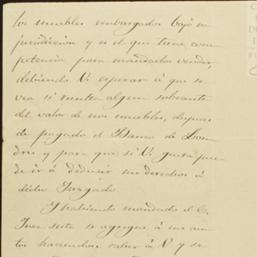 los muebles embargados bajo su
jurisdiccion y es el que tiene com
petencia para mandarlos vender,
debiendo V. esperar á que se
vea si resulta algun sobrante
del valor de esos muebles, despues
de pagado el Banco de Lon
dres y para que si V. gusta pue
da ir á deducir sus derechos á
dicho Juzgado.
Y habiendo mandado el C.
Juez este se agregue á sus au
tos haciendose saber á V. y se